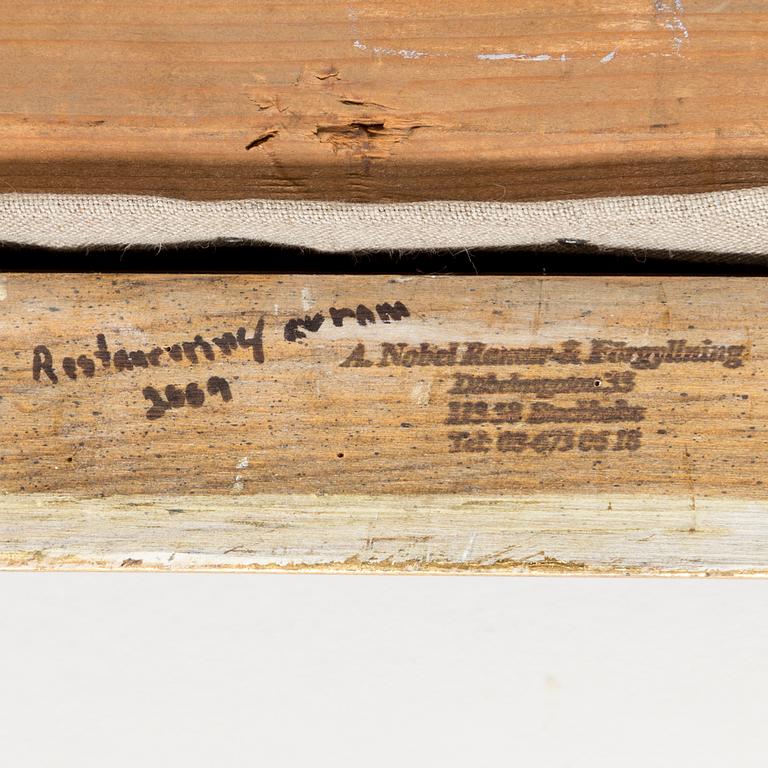 Restaurering av ram
2009
A. Nobel Ramar & Förgyllning
Döbelnsgatan 35
113 58 Stockholm
Tel: 08-673 05 18